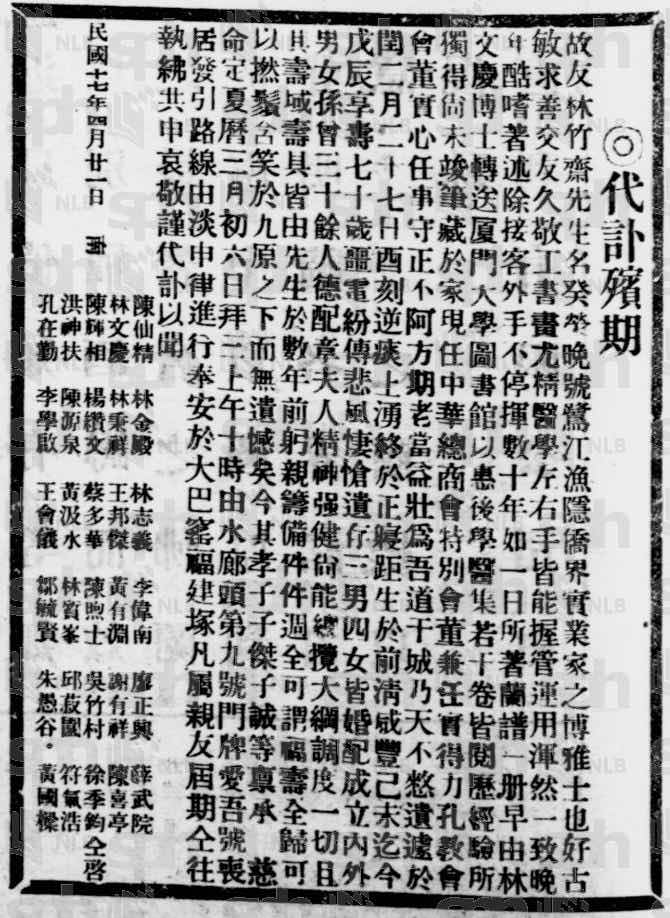 ◎代訃殯期
故友林竹齋先生名癸晚號鷺江漁隱僑界實業家之博雅士也好古
敏求善交友久敬工書畫尤精醫學左右手皆能握管運用渾然一致晚
年酷嗜著述除接客外手不停揮數十年如一日所著蘭譜一册早由林
文慶博士轉送厦門大學圖書館以惠後學醫集若干卷皆閱歷經驗所
獨得尙未竣筆藏於家現任中華總商會特別會董兼實得力孔敎會
會董實心任事守正不阿方期老當益壯爲吾道干城乃天不憗遺遽於
閏二月二十七日酉刻逆痰上湧終於正寢距生於前淸咸豐己未迄今
戊辰享壽七十歲噩電紛傳悲風悽愴遺存三男四女皆婚配成立內外
男女孫曾三十餘人德配章夫人精神强健尙能總攬大綱調度一切且
其壽域壽具皆由先生於數年前躬親籌備件件週全可謂福壽全歸可
以撚鬚含笑於九原之下而無遺憾矣今其孝子子傑子誠等禀承 慈
命定夏曆三月初六日拜二上午十時由水廊頭第九號門牌愛吾號喪
居發引路線由淡申律進行奉安於大巴窰福建塚凡屬親友屆期仝往
執紼共申哀敬謹代訃以聞
陳仙精 林金殿 林志義 李偉南 廖正興 薛武院
林文慶 林秉祥 王邦傑 黃有淵 謝有祥 陳喜亭
陳輝相 楊纘文 蔡多華 陳煦士 吳竹村 徐季鈞仝啓
洪神扶 陳源泉 黃汲水 林賓峯 邱菽園 符氣浩
孔在勤 李學啟 王會儀 鄒毓賢 朱愚谷。 黃國樑
民國十七年四月廿一日